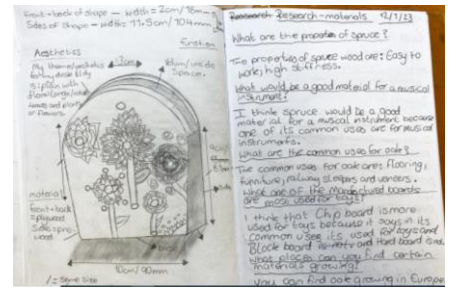 front + back of shape - width = 2cm/
Sides of shape - width = 11.5cm/104mm
function
Aesthetics
My theme
flowers
material
front + back
= plywood
Sides =
wood
10cm/90mm
= Same size
Research - materials 12/1/23
What are the properties of spruce?
The properties of spruce wood are: Easy to
work, high stiffness.
What would be a good material for a musical
instrument?
I think spruce would be a good
material for a musical instrument because
one of its common uses are for musical
instruments.
What are the common uses for oak?
The common uses for oak are: flooring,
furniture, railway sleepers and veneers.
What one of the manufactured boards
are most used for toys?
I think that Chip board is more
used for toys because it says in its
common uses its used for toys and
Block board is not and Hard board is not.
What places can you find certain
materials growing?
You can find oak growing in Europe